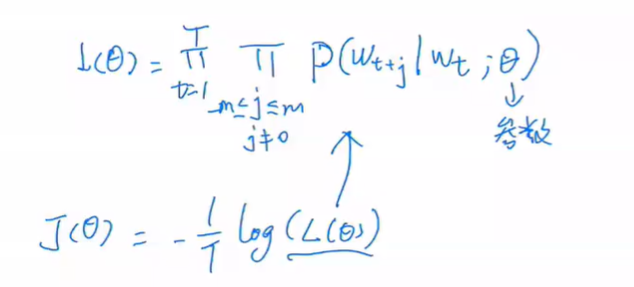 L(θ) = ∏_{t=1}^{T} ∏_{-m≤j≤m, j≠0} P(w_{t+j} | w_t ; θ)
↓
参数
J(θ) = -1/T log(L(θ))